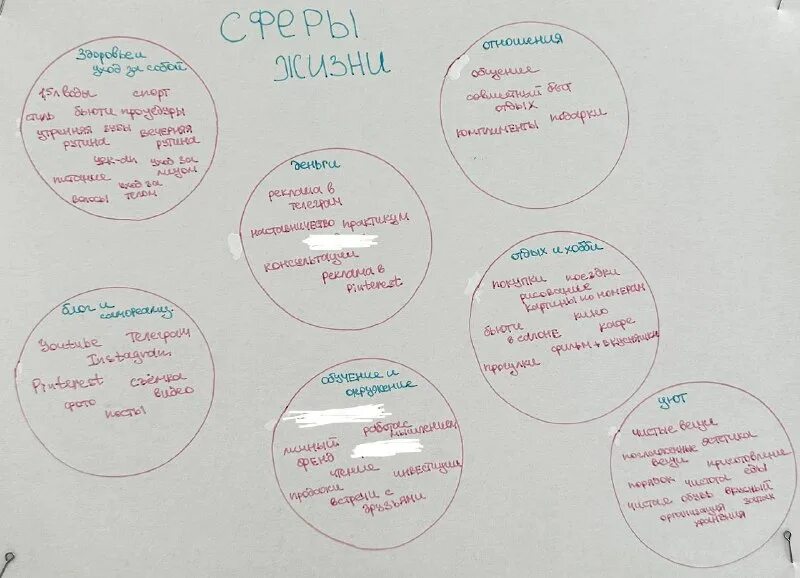 СФЕРЫ
ЖИЗНИ
Здоровье и
уход за собой
1,5л воды спорт
стиль бьюти процедуры
утренняя зубы вечерняя
рутина рутина
чек-ап уход за
питание лицом
уход за
волосы телом
отношения
общение
совместный быт
отдых
комплименты подарки
деньги
реклама в
телеграм
наставничество практикум
консультации
реклама в
pinterest
отдых и хобби
покупки поездки
рисование
картины по номерам
бьюти кино
в салоне кафе
прогулки фильм + вкусняшки
блог и
самореализ.
Youtube Телеграм
Instagram
Pinterest съёмка
фото видео
посты
обучение и
окружение
работа с
личный мышлением
бренд
чтение инвестиции
продажи
встречи с
друзьями
уют
чистые вещи
поглаженные эстетика
вещи приготовление
порядок чистота еды
чистая обувь вкусный
организация запах
хранения